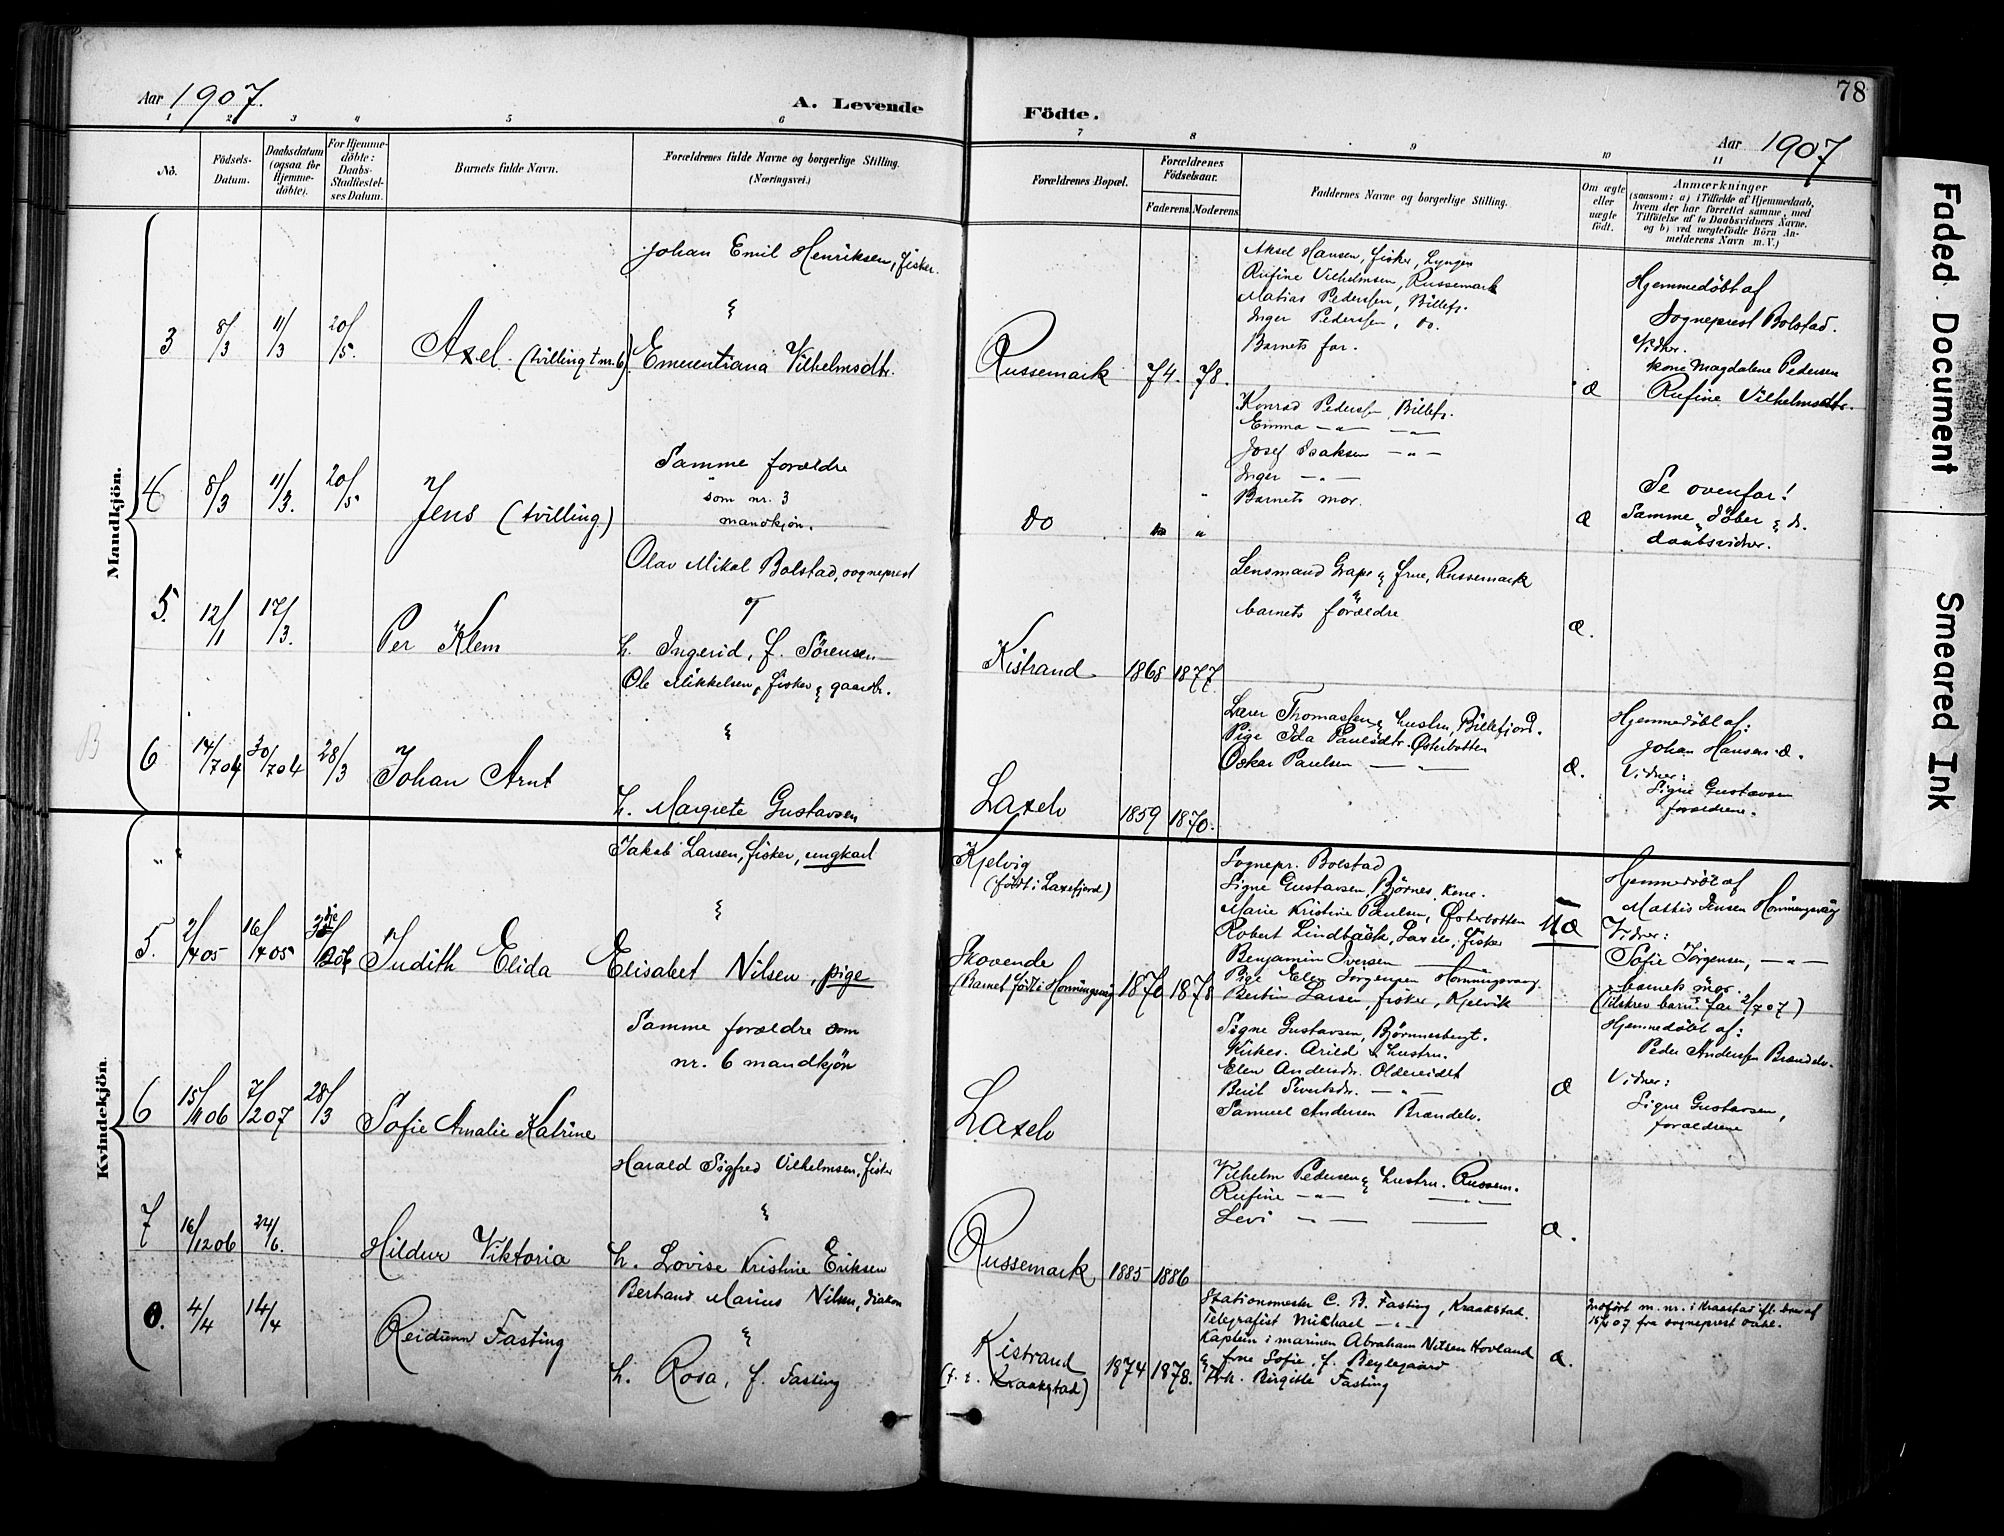 78
Aar 1907.
A. Levende Födte.
Aar 1907
1 2 3 4 5 6 7 8 9 10 11
No.
Födsels-Datum.
Daabsdatum (ogsaa for Hjemme-döbte).
For Hjemme-döbte: Daabs-Stadfæstel-ses Datum.
Barnets fulde Navn.
Forældrenes fulde Navne og borgerlige Stilling.
(Næringsvei.)
Forældrenes Bopæl.
Forældrenes Födselsaar.
Faderens. Moderens.
Faddernes Navne og borgerlige Stilling.
Om ægte eller uægte födt.
Anmærkninger
(saasom: a) i Tilfælde af Hjemmedaab,
hvem der har forrettet samme, med
Tilföielse af to Daabsvidners Navne,
og b) ved uægtefödte Börn An-
melderens Navn m. V.)
Mandkjön.
3 8/3 11/3 20/5. Axel. (tvilling t nr. 6)
Johan Emil Henriksen, fisker.
&
Emerentiana Vilhelmsdtr.
Russemark 74. 78.
Aksel Hansen, fisker, Lyngen
Rufine Vilhelmsen, Russemark
Matias Pedersen, Billefj.
Inger Pedersen, do.
Barnets far.
Æ
Hjemmedøbt af
Sogneprest Bolstad.
Vidner.
kone Magdalene Pedersen
Rufine Vilhelmsdtr.
4 8/3 11/3. 20/5 Jens (tvilling)
Samme forældre
som nr. 3
mandkjøn.
do " "
Konrad Pedersen Billefj.
Emma — " — — " —
Josef Isaksen — " —
Inger — " —
Barnets mor.
Æ
Se ovenfor!
Samme døber & d.
daabsvidner.
5. 12/1 17/3. Per Klem
Olav Mikal Bolstad, sogneprest
og
h. Ingerid, f. Sörensen
Kistrand 1868 1877
Lensmand Grape & frue, Russemark
&
barnets forældre
Æ.
6 30/704 28/3 Johan Arnt
Ole Mikkelsen, fisker & gaardbr.
&
h. Margrete Gustavsen
Laxelv 1859 1870.
Lærer Thomassen & hustru, Billefjord.
Pige Ida Paulsdtr. Østerbotten
Oskar Paulsen — " —
Æ.
Hjemmedøbt af:
Johan Hansen
Vidner:
Signe Gustavsen
forældrene.
Kvindekjön.
5. 2/705 16/705 Judith Elida
Jakob Larsen, fisker, ungkarl
&
Elisabet Nilsen, pige
Kjelvig
(født i Laxefjord)
Skovende
(Barnet født i Honningsvaag) 1870 1878
Sognepr. Bolstad
Signe Gustavsen, Björnes, kone.
Marie Kristine Paulsen, Østerbotten
Robert Lindbäck, Laxelv, fisker
Benjamin Iversen
Pige Elen Jörgensen Honningsvaag
Bertin Larsen fisker, Kjelvik
UÆ
Hjemmedøbt af
Mattis Jensen Honningsvaag
Vidner:
Sofie Jørgensen, — " —
barnets mor.
(Utskrev barns far 2/707)
6 15/1106 7/207 28/3 Sofie Amalie Katrine
Samme forældre som
nr. 6 mandkjøn
Laxelv
Signe Gustavsen,
Kirkes. Arild & hustru.
Elen Andersdr. Oldereidet
Berit Sivertsdr. — " —
Samuel Andersen Brændelv.
Æ
Hjemmedøbt af:
Peder Andersen Brændelv.
Vidner:
Signe Gustavsen,
forældrene
7 16/1206 24/6. Hildur Viktoria
Harald Sigfred Vilhelmsen, fisker
&
h. Lovise Kristine Eriksen
Russemark 1885 1886
Vilhelm Pedersen & hustru. Russem.
Rufine — " —
Levi — " —
Æ.
8. 4/4 14/4 Reidunn Fasting
Bertand Marius Nilsen, diakon
&
h. Rosa, f. Fasting
Kistrand
(f. i. Kraakstad) 1874 1878.
Stationsmester C. B. Fasting, Kraakstad.
Telegrafist Michael — " —
Kaptein i marinen Abraham Nilsen Hovland
& frue Sofie, f. Beylegaard
Frk. Birgitte Fasting
Æ.
Indført m. nr. i Kraakstad ifl. brev af
fra sogneprest
Faded Document
Smeared Ink